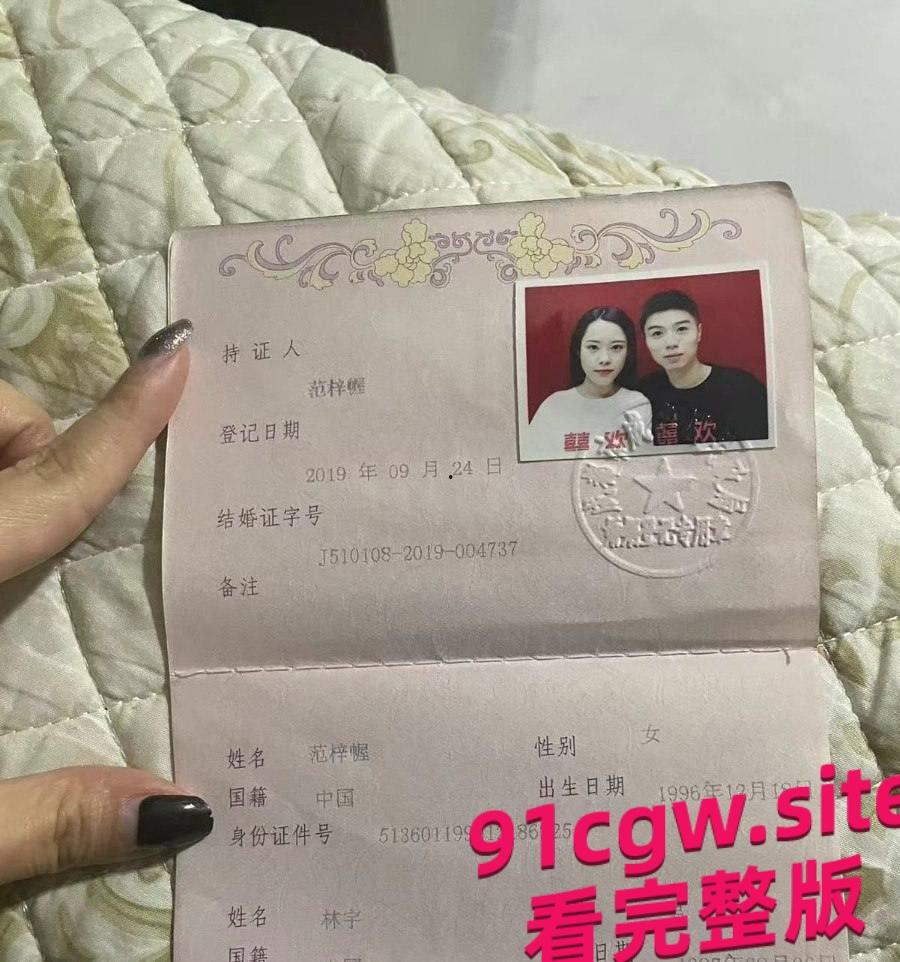 持证人
范梓幄
登记日期
2019 年 09 月 24 日
结婚证字号
J510108-2019-004737
备注
囍 欢 囍 欢
姓名 范梓幄 性别 女
国籍 中国 出生日期 1996年12月18日
身份证件号
91cgw.site
看完整版
姓名 林宇
国籍 中国